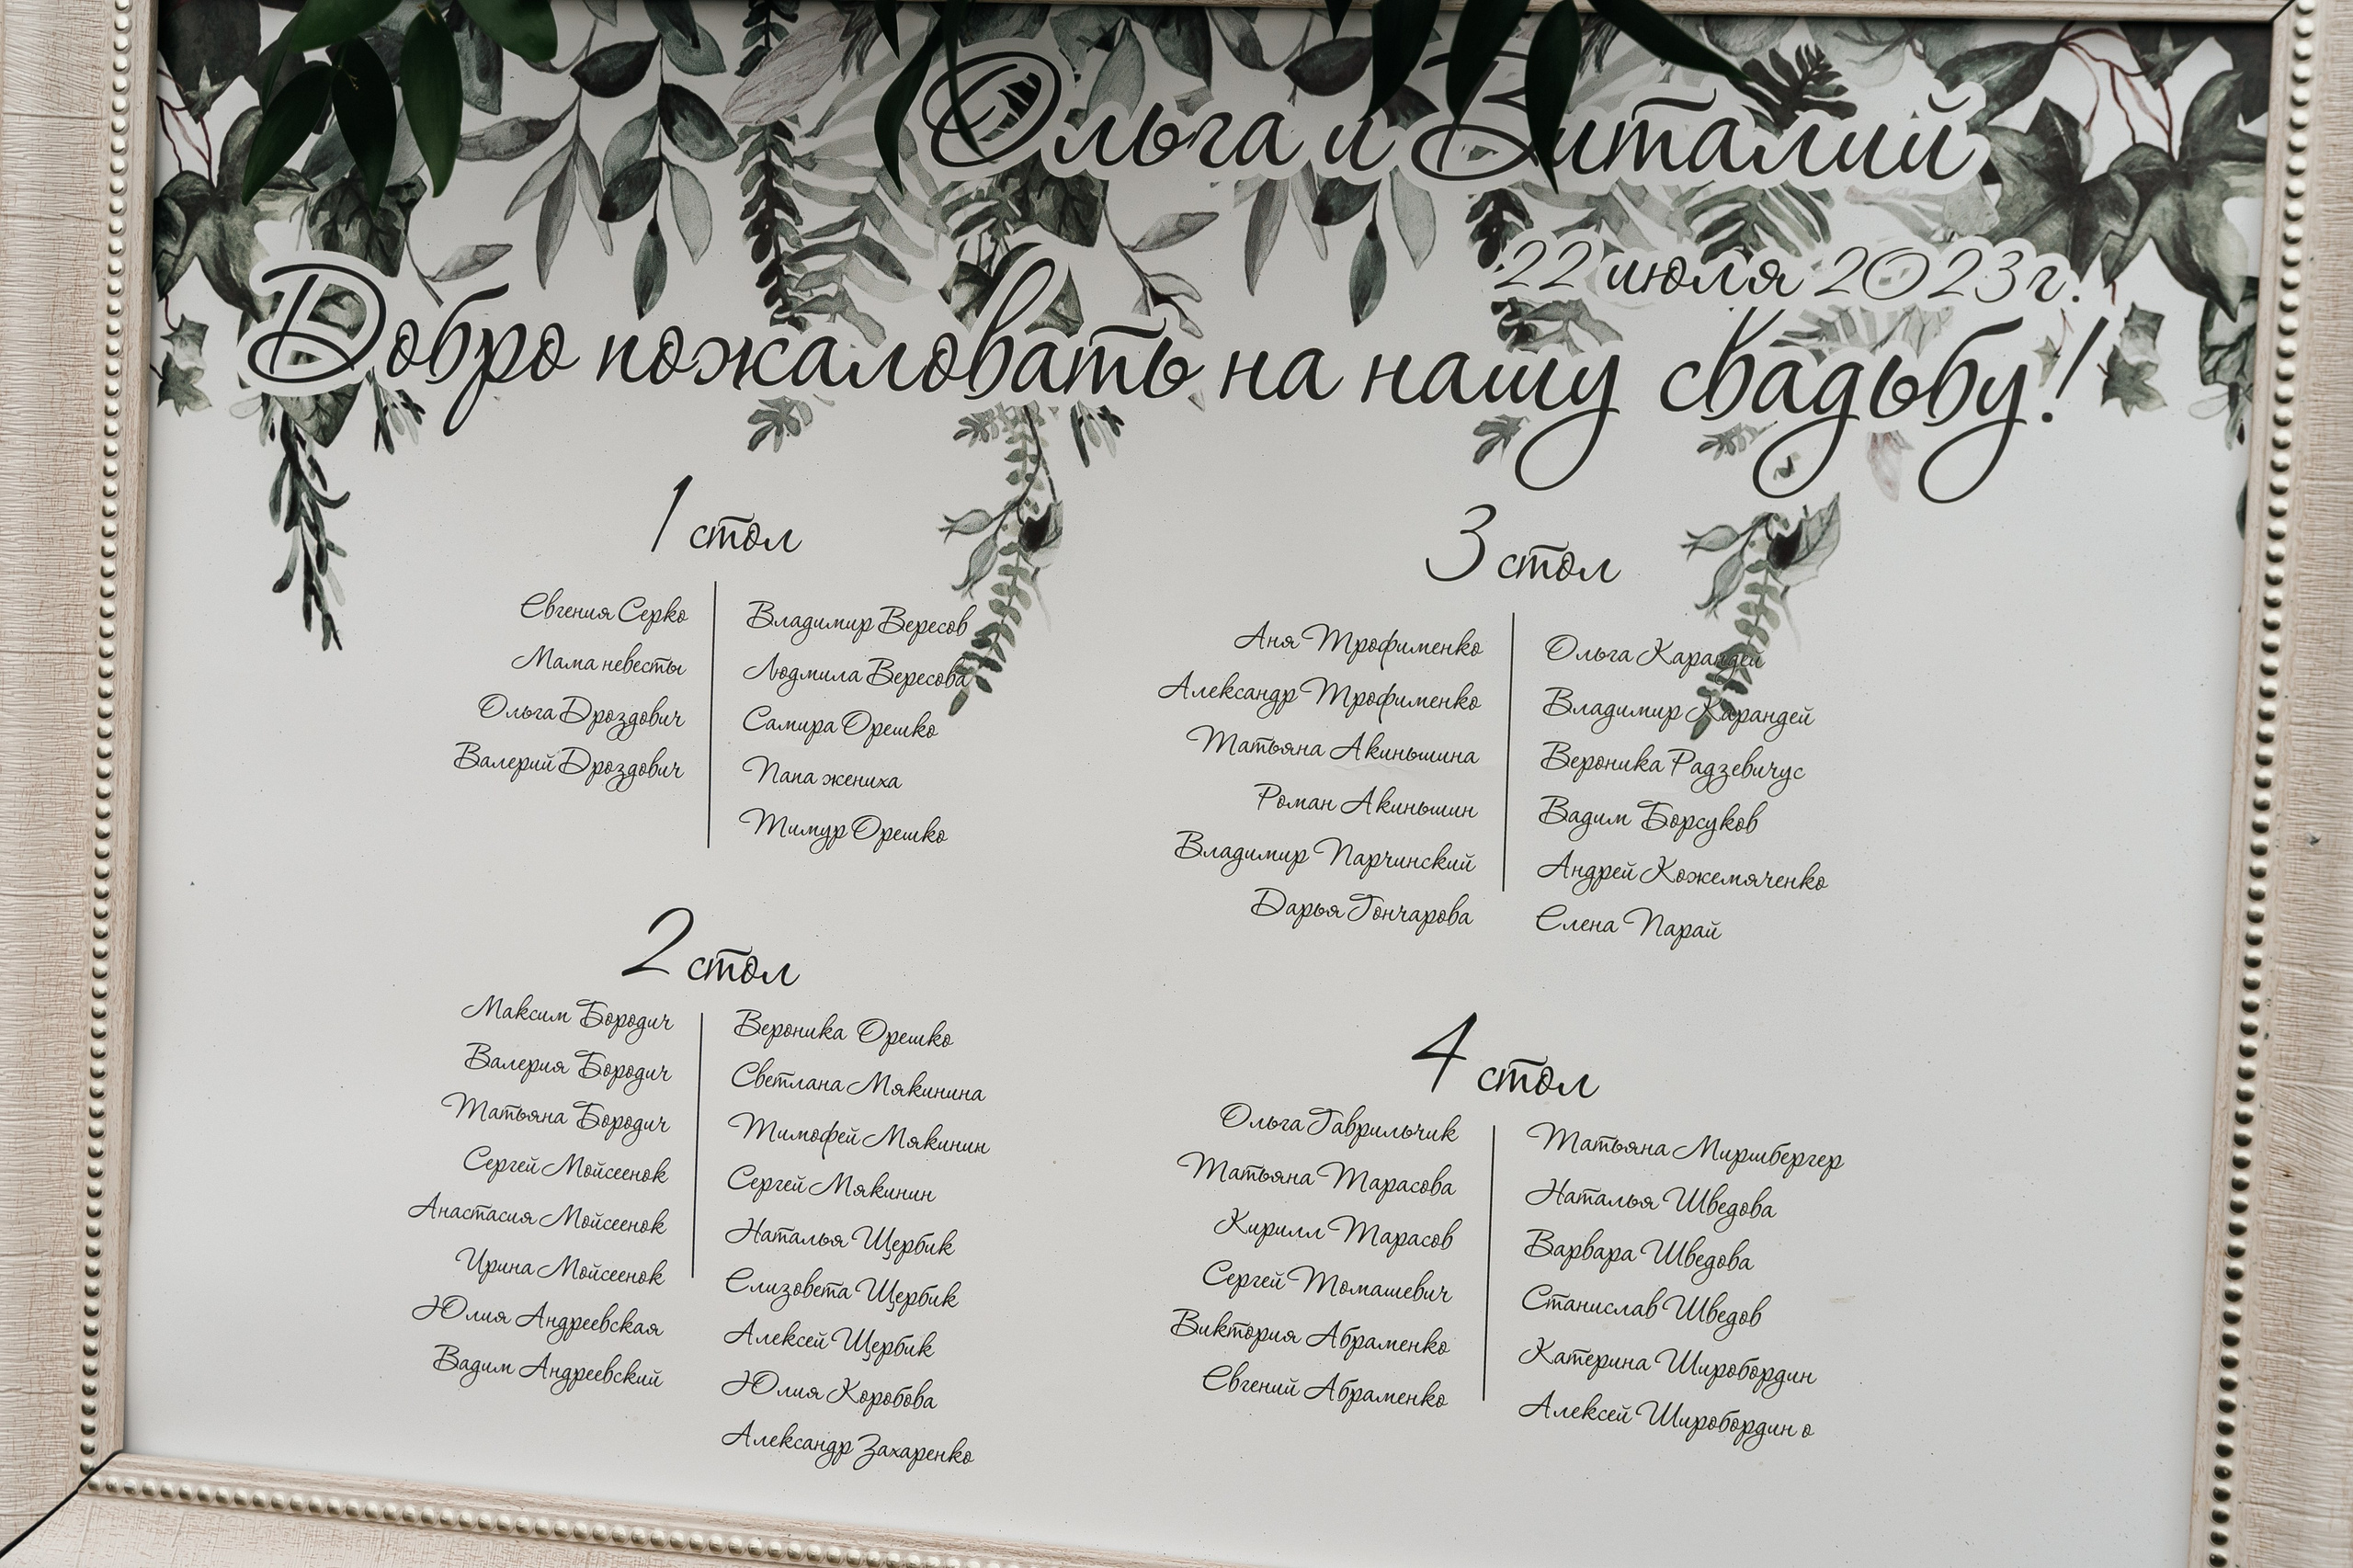 Ольга и Виталий
22 июля 2023г.
Добро пожаловать на нашу свадьбу!
1 стол
Евгения Серко
Мама невесты
Ольга Дроздович
Валерий Дроздович
Владимир Вересов
Людмила Вересова
Самира Орешко
Папа жениха
Тимур Орешко
2 стол
Максим Бородич
Валерия Бородич
Татьяна Бородич
Сергей Мойсеенок
Анастасия Мойсеенок
Ирина Мойсеенок
Юлия Андреевская
Вадим Андреевский
Вероника Орешко
Светлана Мякинина
Тимофей Мякинин
Сергей Мякинин
Наталья Щербик
Елизовета Щербик
Алексей Щербик
Юлия Коробова
Александр Захаренко
3 стол
Аня Трофименко
Александр Трофименко
Татьяна Акиньшина
Роман Акиньшин
Владимир Парчинский
Дарья Гончарова
Ольга Карандей
Владимир Карандей
Вероника Радзевичус
Вадим Борсуков
Андрей Кожемяченко
Елена Парай
4 стол
Ольга Гаврильчик
Татьяна Тарасова
Кирилл Тарасов
Сергей Томашевич
Виктория Абраменко
Евгений Абраменко
Татьяна Миршбергер
Наталья Шведова
Варвара Шведова
Станислав Шведов
Катерина Широбордин
Алексей Широбордин о